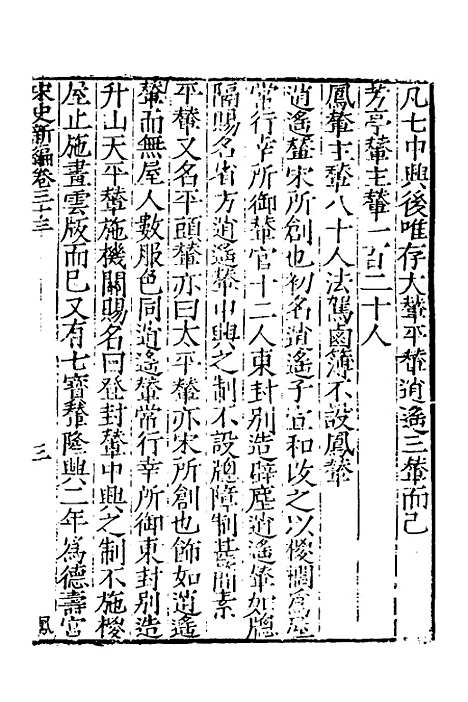 凡七中興後唯存大輦平輦逍遙三輦而已
芳亭輦主輦一百二十人
鳳輦主輦八十人法駕鹵簿不設鳳輦
逍遙輦宋所創也初名逍遙子宣和改之以椶櫚爲屋
常行幸所御輦官十二人東封别造辟塵逍遙輦加牎
隔賜名省方逍遙輦中興之制不設牎障制甚簡素
平輦又名平頭輦亦曰太平輦亦宋所創也飾如逍遙
輦而無屋人數服色同逍遙輦常行幸所御東封别造
升山天平輦施機關賜名曰登封輦中興之制不施椶
屋止施畫雲版而已又有七寳輦隆興二年爲德壽宫
宋史新編卷三十三
三
鳳